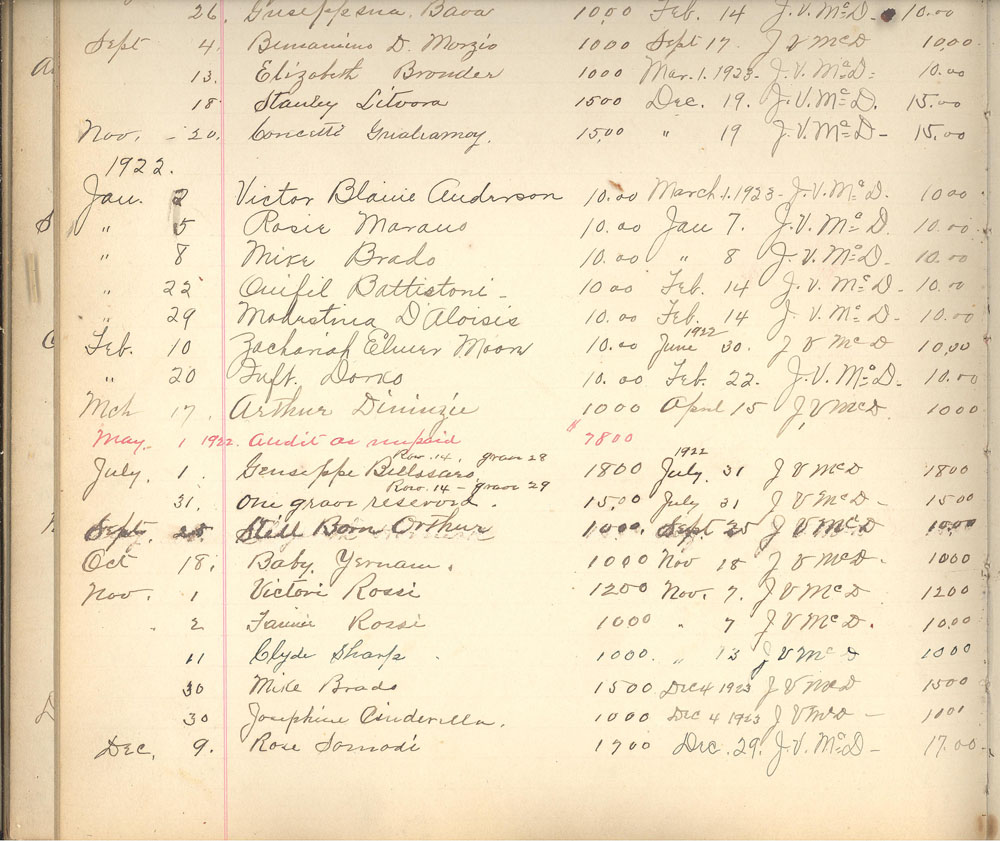 26. Guseppina Bava 1000 Feb. 14 J.V. McD. 10.00
Sept 4. Benıamino D. Morzio 1000 Sept 17. J V McD 10.00
13. Elizabeth Bronder 1000 Mar. 1. 1923 - J.V. McD - 10.00
18 Stanley Litvora 1500 Dec. 19. J.V. McD. 15.00
Nov. - 20. Concetti 15.00 " 19 J.V. McD - 15.00
1922.
Jan. 2 Victor Blaine Anderson 10.00 March 1. 1923 - J.V. McD. 10 00
" 5 Rosie Marano 10.00 Jan 7. J.V. McD. 10.00
" 8 Mike Brado 10.00 " 8 J.V. McD - 10.00
" 22 Battistoni - 10 00 Feb. 14 J.V. McD - 10.00
" 29 D'Aloisis 10.00 Feb. 14 J.V. McD - 10.00
Feb. 10 Zachariah Elmer Moon 10.00 June 1922 30. J V McD 10,00
" 20 Dorko 10.00 Feb. 22. J.V. McD - 10.00
Mch 17. Arthur Dininzie 1000 April 15 J,V McD. 1000
May. 1 1922. Audit as unpaid $ 7800
Row. 14. grave 28 1922
July. 1. Genseppe Bellssaro. 1800 July 31 J V McD 1800
Row. 14 - grave 29
31. One grave reserved. 1500 July 31 J V McD - 1500
Sept. 25. Still Born Arthur 1000. Sept 25 J V McD 10.00
Oct 18. Baby Yernam. 1000 Nov 18 J V McD. 1000
Nov. 1 Victori Rossi 1200 Nov. 7. J V McD 1200
" 2 Fannie Rossi 1000 " 7 J V McD. 1000
11 Clyde Sharp 1000. " 13 J V McD 1000
30 Mike Brado 1500 Dec 4 1923 J V McD 1500
30 Josephine Cinderella. 1000 Dec 4 1923 J V McD - 1000
Dec. 9. Rose Somodi 1700 Dec. 29. J.V. McD - 17.00